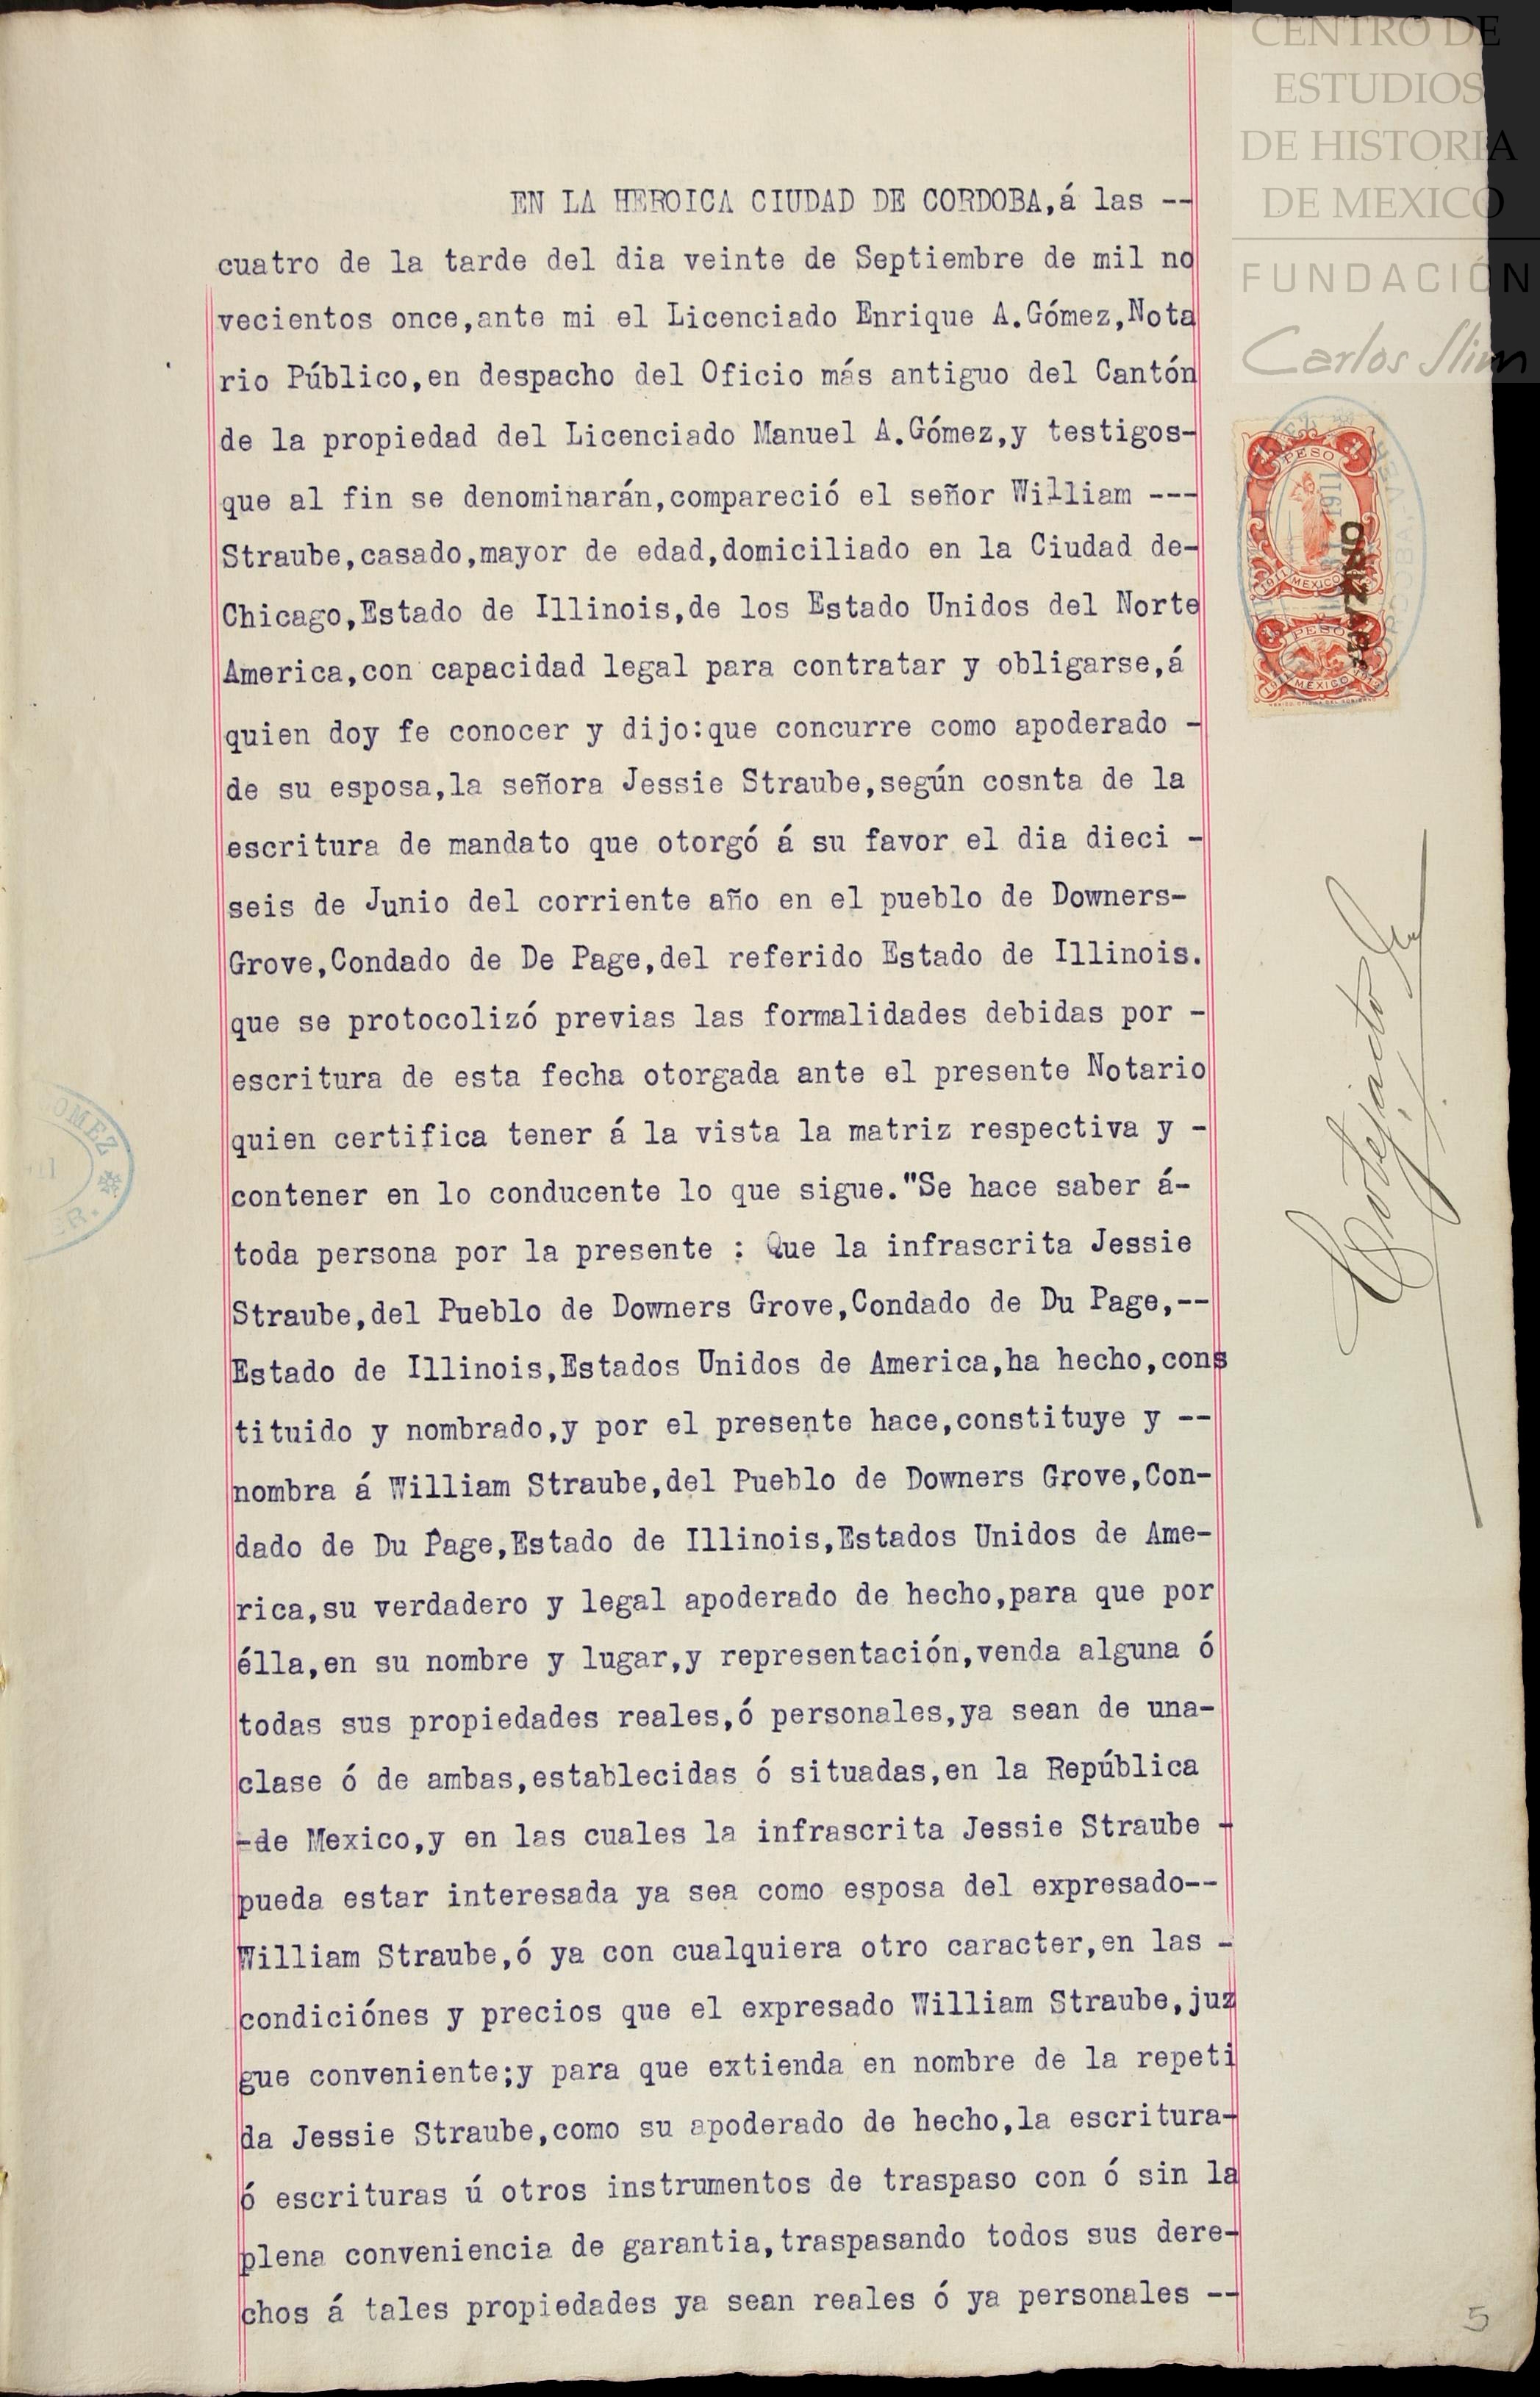 CENTRO DE
ESTUDIOS
DE HISTORIA
DE MEXICO
FUNDACIÓN
Carlos Slim
EN LA HEROICA CIUDAD DE CORDOBA,á las --
cuatro de la tarde del dia veinte de Septiembre de mil no
vecientos once,ante mi el Licenciado Enrique A.Gómez,Nota
rio Público,en despacho del Oficio más antiguo del Cantón
de la propiedad del Licenciado Manuel A.Gómez,y testigos-
que al fin se denominarán,compareció el señor William ---
Straube,casado,mayor de edad,domiciliado en la Ciudad de-
Chicago,Estado de Illinois,de los Estado Unidos del Norte
America,con capacidad legal para contratar y obligarse,á
quien doy fe conocer y dijo:que concurre como apoderado -
de su esposa,la señora Jessie Straube,según cosnta de la
escritura de mandato que otorgó á su favor el dia dieci -
seis de Junio del corriente año en el pueblo de Downers-
Grove,Condado de De Page,del referido Estado de Illinois.
que se protocolizó previas las formalidades debidas por -
escritura de esta fecha otorgada ante el presente Notario
quien certifica tener á la vista la matriz respectiva y -
contener en lo conducente lo que sigue."Se hace saber á-
toda persona por la presente : Que la infrascrita Jessie
Straube,del Pueblo de Downers Grove,Condado de Du Page,--
Estado de Illinois,Estados Unidos de America,ha hecho,cons
tituido y nombrado,y por el presente hace,constituye y --
nombra á William Straube,del Pueblo de Downers Grove,Con-
dado de Du Page,Estado de Illinois,Estados Unidos de Ame-
rica,su verdadero y legal apoderado de hecho,para que por
élla,en su nombre y lugar,y representación,venda alguna ó
todas sus propiedades reales,ó personales,ya sean de una-
clase ó de ambas,establecidas ó situadas,en la República
-de Mexico,y en las cuales la infrascrita Jessie Straube -
pueda estar interesada ya sea como esposa del expresado--
William Straube,ó ya con cualquiera otro caracter,en las -
condiciónes y precios que el expresado William Straube,juz
gue conveniente;y para que extienda en nombre de la repeti
da Jessie Straube,como su apoderado de hecho,la escritura-
ó escrituras ú otros instrumentos de traspaso con ó sin la
plena conveniencia de garantia,traspasando todos sus dere-
chos á tales propiedades ya sean reales ó ya personales --
PESO
1911 MEXICO
ORIZABA
PESO
MEXICO
Cotejado
OMEZ
ER.
5